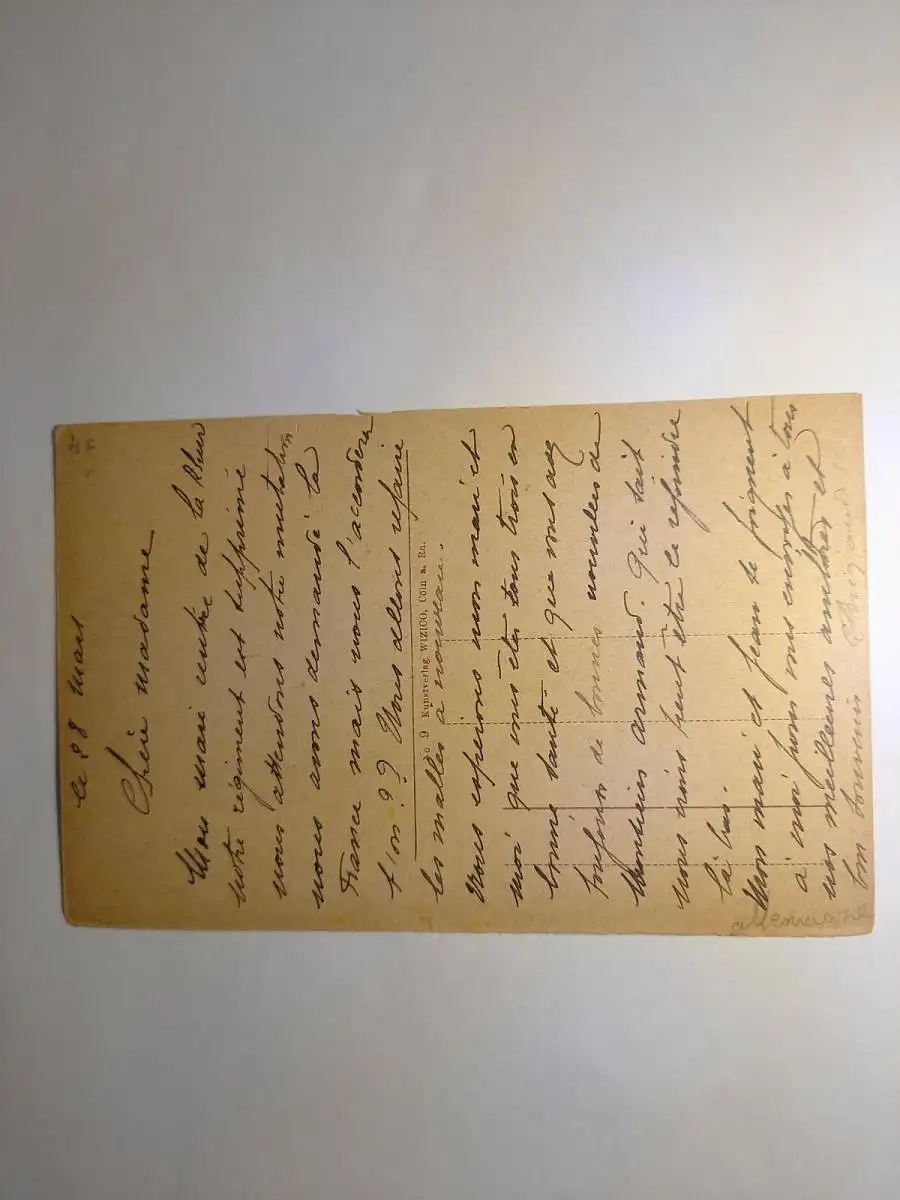 le 28 mars
Chère madame
Mon mari rentre de la Rhur
notre régiment est supprimé
nous attendons notre mutation
nous avons demandé la
France mais nous l'accordera
t'on ?? Nous allons refaire
les malles à nouveau.
No 9 Kunstverlag WIZICO, Cöln a. Rh.
Nous esperons mon mari et
moi que vous êtes tous trois en
bonne santé et que vous avez
toujours de bonnes nouvelles de
Monsieur Armand. Qui sait
nous irons peut être le rejoindre
là bas.
Mon mari et Jean se joignent
à moi pour vous envoyer à tous
nos meilleures amitiés et
bon souvenir
allemagne